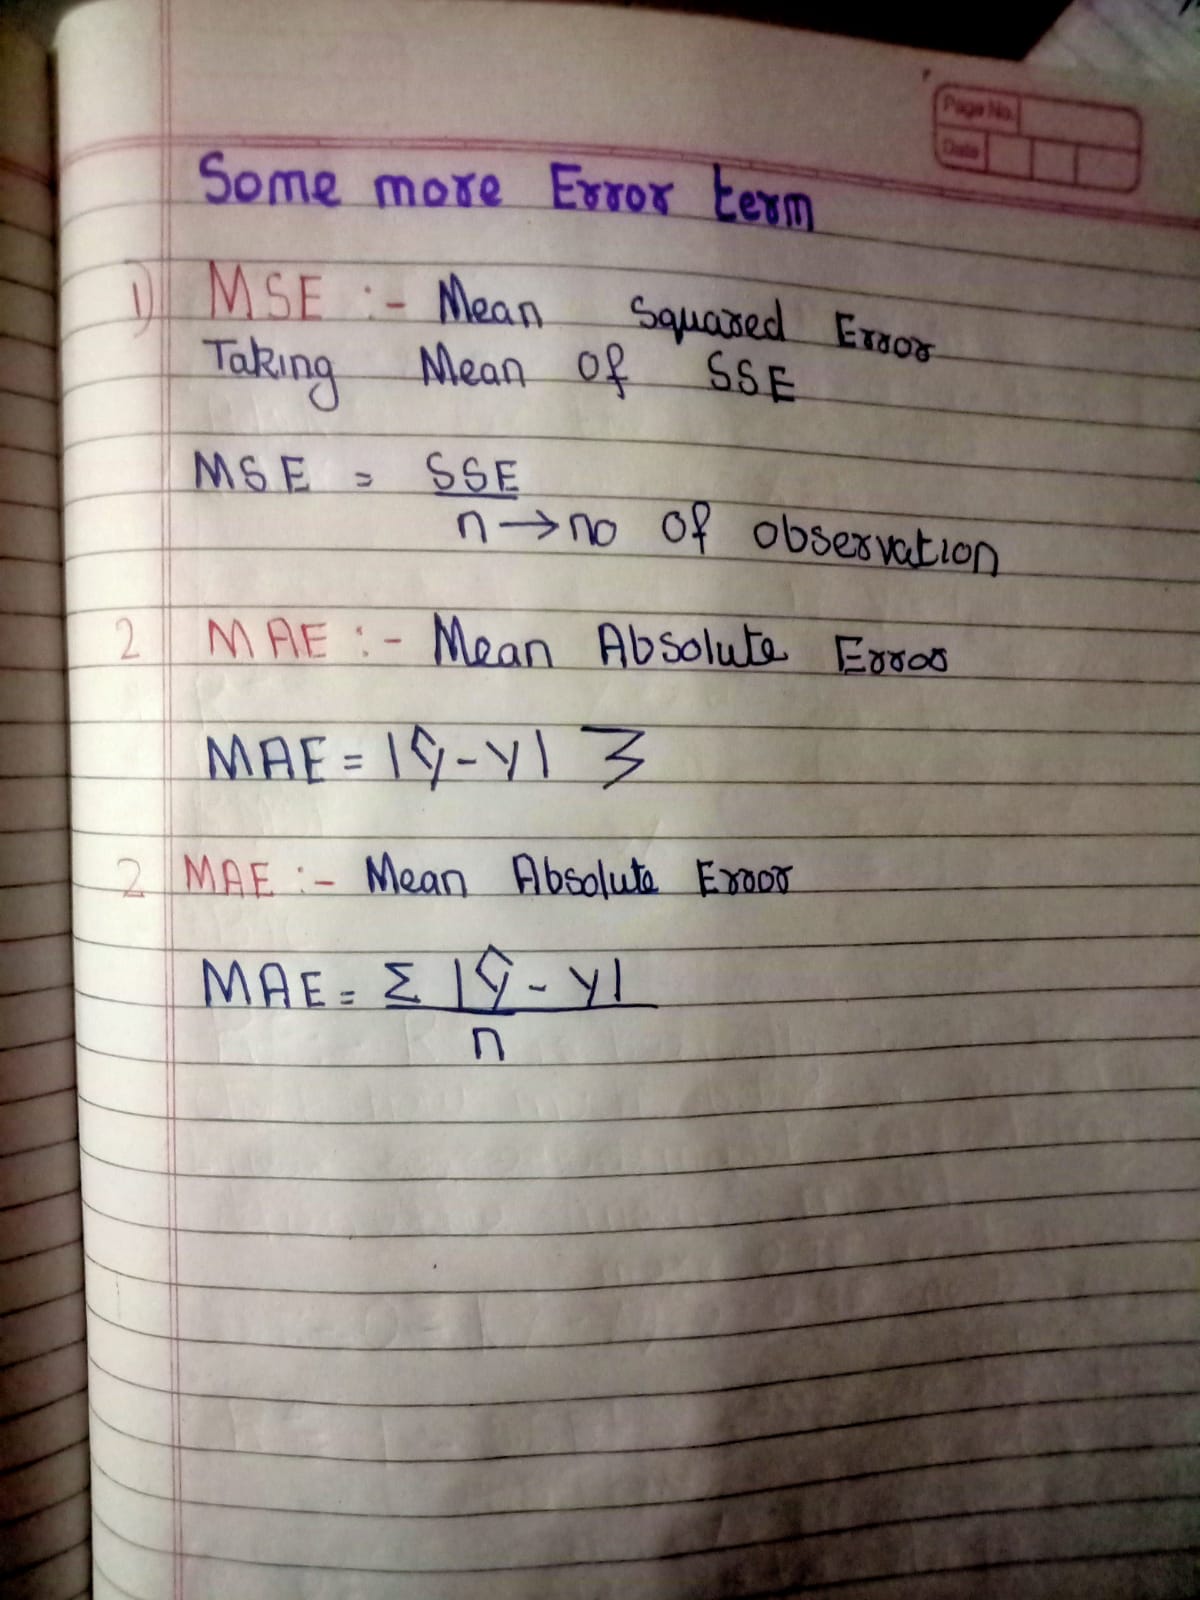 Page No.
Date
Some more Error term
1) MSE :- Mean Squared Error
Taking Mean of SSE
MSE = SSE
n → no of observation
2 MAE :- Mean Absolute Error
MAE = |ŷ - y| Σ
2 MAE :- Mean Absolute Error
MAE = Σ |ŷ - y|
n